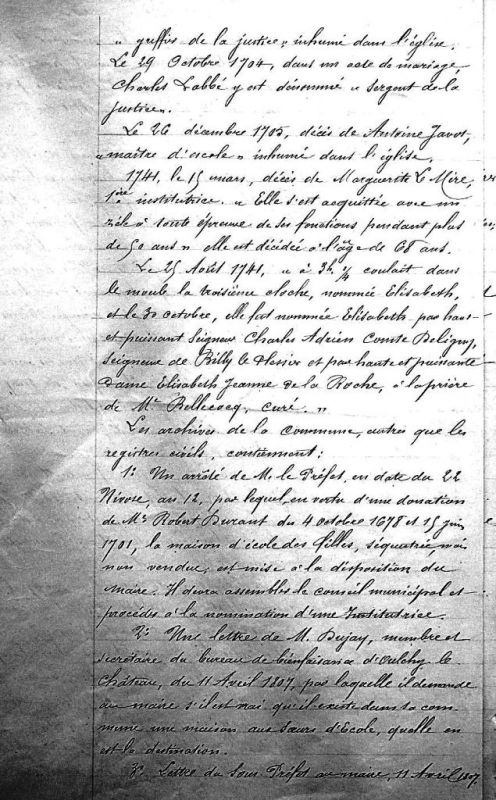 « greffier de la justice » inhumé dans l'église.
Le 29 Octobre 1704, dans un acte de mariage
Charles Labbé y est dénommé « Sergent de la
justice ».
Le 26 décembre 1705, décès de Antoine Javot,
« maître d'escole » inhumé dans l'église.
1741, le 15 mars, décès de Marguerite Le Mire,
1ère institutrice. « Elle s'est acquittée avec un
zèle à toute épreuve de ses fonctions pendant plus
de 50 ans » elle est décédée à l'âge de 68 ans.
Le 25 Août 1741, « à 3h ¼ coulait dans
le moule la troisième cloche, nommée Elisabeth,
et le 30 octobre, elle fut nommée Elisabeth par haut
et puissant Seigneur Charles Adrien Comte Deligny,
Seigneur de Billy le Plessier et par haute et puissante
Dame Elisabeth Jeanne de la Roche, à la prière
de Mr Bellecocq, curé. »
Les archives de la Commune, autres que les
registres civils, contiennent :
1° Un arrêté de M. le Préfet, en date du 22
Nivose, an 12, par lequel, en vertu d'une donation
de Mr Robert Durant du 4 octobre 1678 et 15 juin
1701, la maison d'école des filles, séquestrée mais
non vendue, est mise à la disposition du
Maire. Il devra assembler le conseil municipal et
procéder à la nomination d'une Institutrice.
2° Une lettre de M. Dujay, membre et
secrétaire du bureau de bienfaisance d'Oulchy le
Château, du 11 Avril 1807, par laquelle il demande
au maire s'il est vrai qu'il existe dans sa com-
mune une maison aux Sœurs d'Ecole, quelle en
est la destination.
3° Lettre du Sous Préfet au maire, 11 Avril 1807.